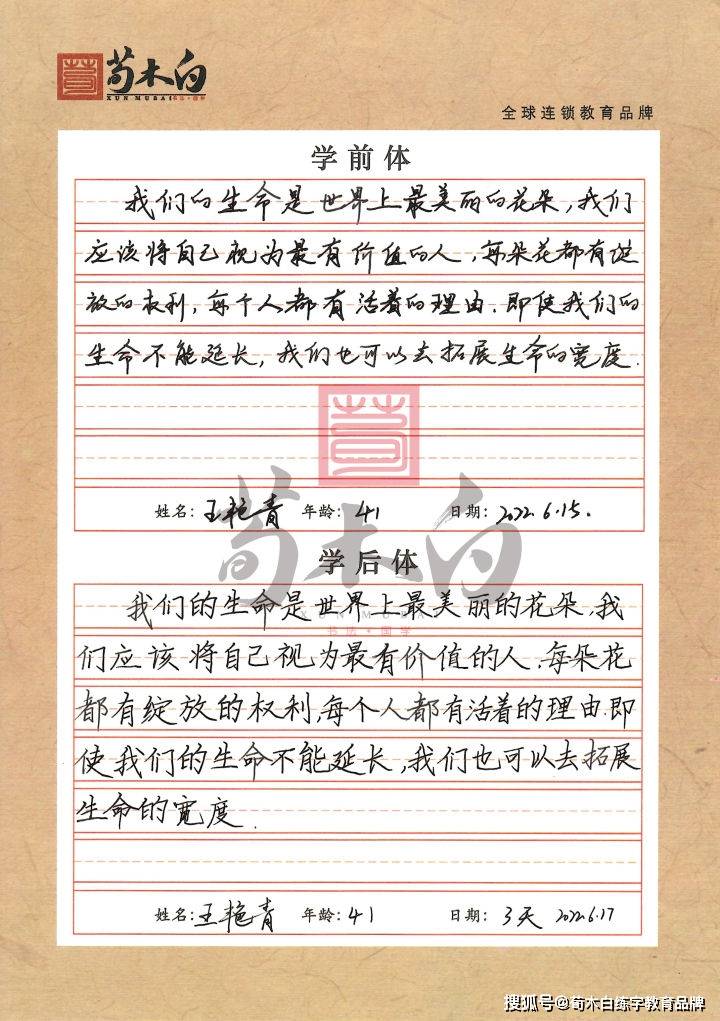 荀木白
XUN MUBAI 书法·国学
全球连锁教育品牌
学前体
我们的生命是世界上最美丽的花朵,我们
应该将自己视为最有价值的人,每朵花都有绽
放的权利,每个人都有活着的理由.即使我们的
生命不能延长,我们也可以去拓展生命的宽度.
姓名:王艳青 年龄:41 日期:2022.6.15.
荀木白
学后体
我们的生命是世界上最美丽的花朵.我
XUN MUBAI
书法·国学
们应该将自己视为最有价值的人.每朵花
都有绽放的权利,每个人都有活着的理由.即
使我们的生命不能延长,我们也可以去拓展
生命的宽度.
姓名:王艳青 年龄:41 日期:3天 2022.6.17
搜狐号@荀木白练字教育品牌